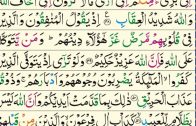 شَدِيدُ الْعِقَابِ إِذْ يَقُولُ الْمُنٰفِقُونَ وَالَّذِينَ
فِي قُلُوبِهِمْ مَرَضٌ غَرَّ هٰٓؤُلَآءِ دِينُهُمْ وَمَنْ يَتَوَكَّلْ
عَلَى اللّٰهِ فَإِنَّ اللّٰهَ عَزِيزٌ حَكِيمٌ وَلَوْ تَرٰٓى إِذْ يَتَوَفَّى الَّذِينَ
كَفَرُوا الْمَلٰٓئِكَةُ يَضْرِبُونَ وُجُوهَهُمْ وَأَدْبَارَهُمْ وَذُوقُوا
عَذَابَ الْحَرِيقِ ذٰلِكَ بِمَا قَدَّمَتْ أَيْدِيكُمْ وَأَنَّ اللّٰهَ لَيْسَ